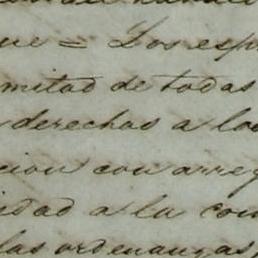 que = Los esp
mitad de todas
derechos a las
cion con arreg
idad a la con
las ordenanzas,